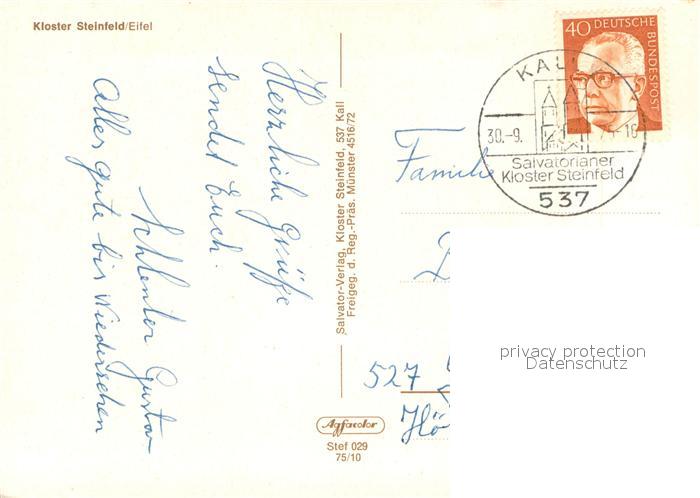 Kloster Steinfeld/Eifel
Herzliche Grüße
sendet Euch
Schlenter Gustav
Alles gute bis Wiedersehen
Salvator-Verlag, Kloster Steinfeld, 537 Kall
Freigeg. d. Reg.-Präs. Münster 4516/72
Agfacolor
Stef 029
75/10
40 DEUTSCHE
BUNDESPOST
KALL
30.-9.
-16
Salvatorianer
Kloster Steinfeld
537
Familie
527
Hö
privacy protection
Datenschutz